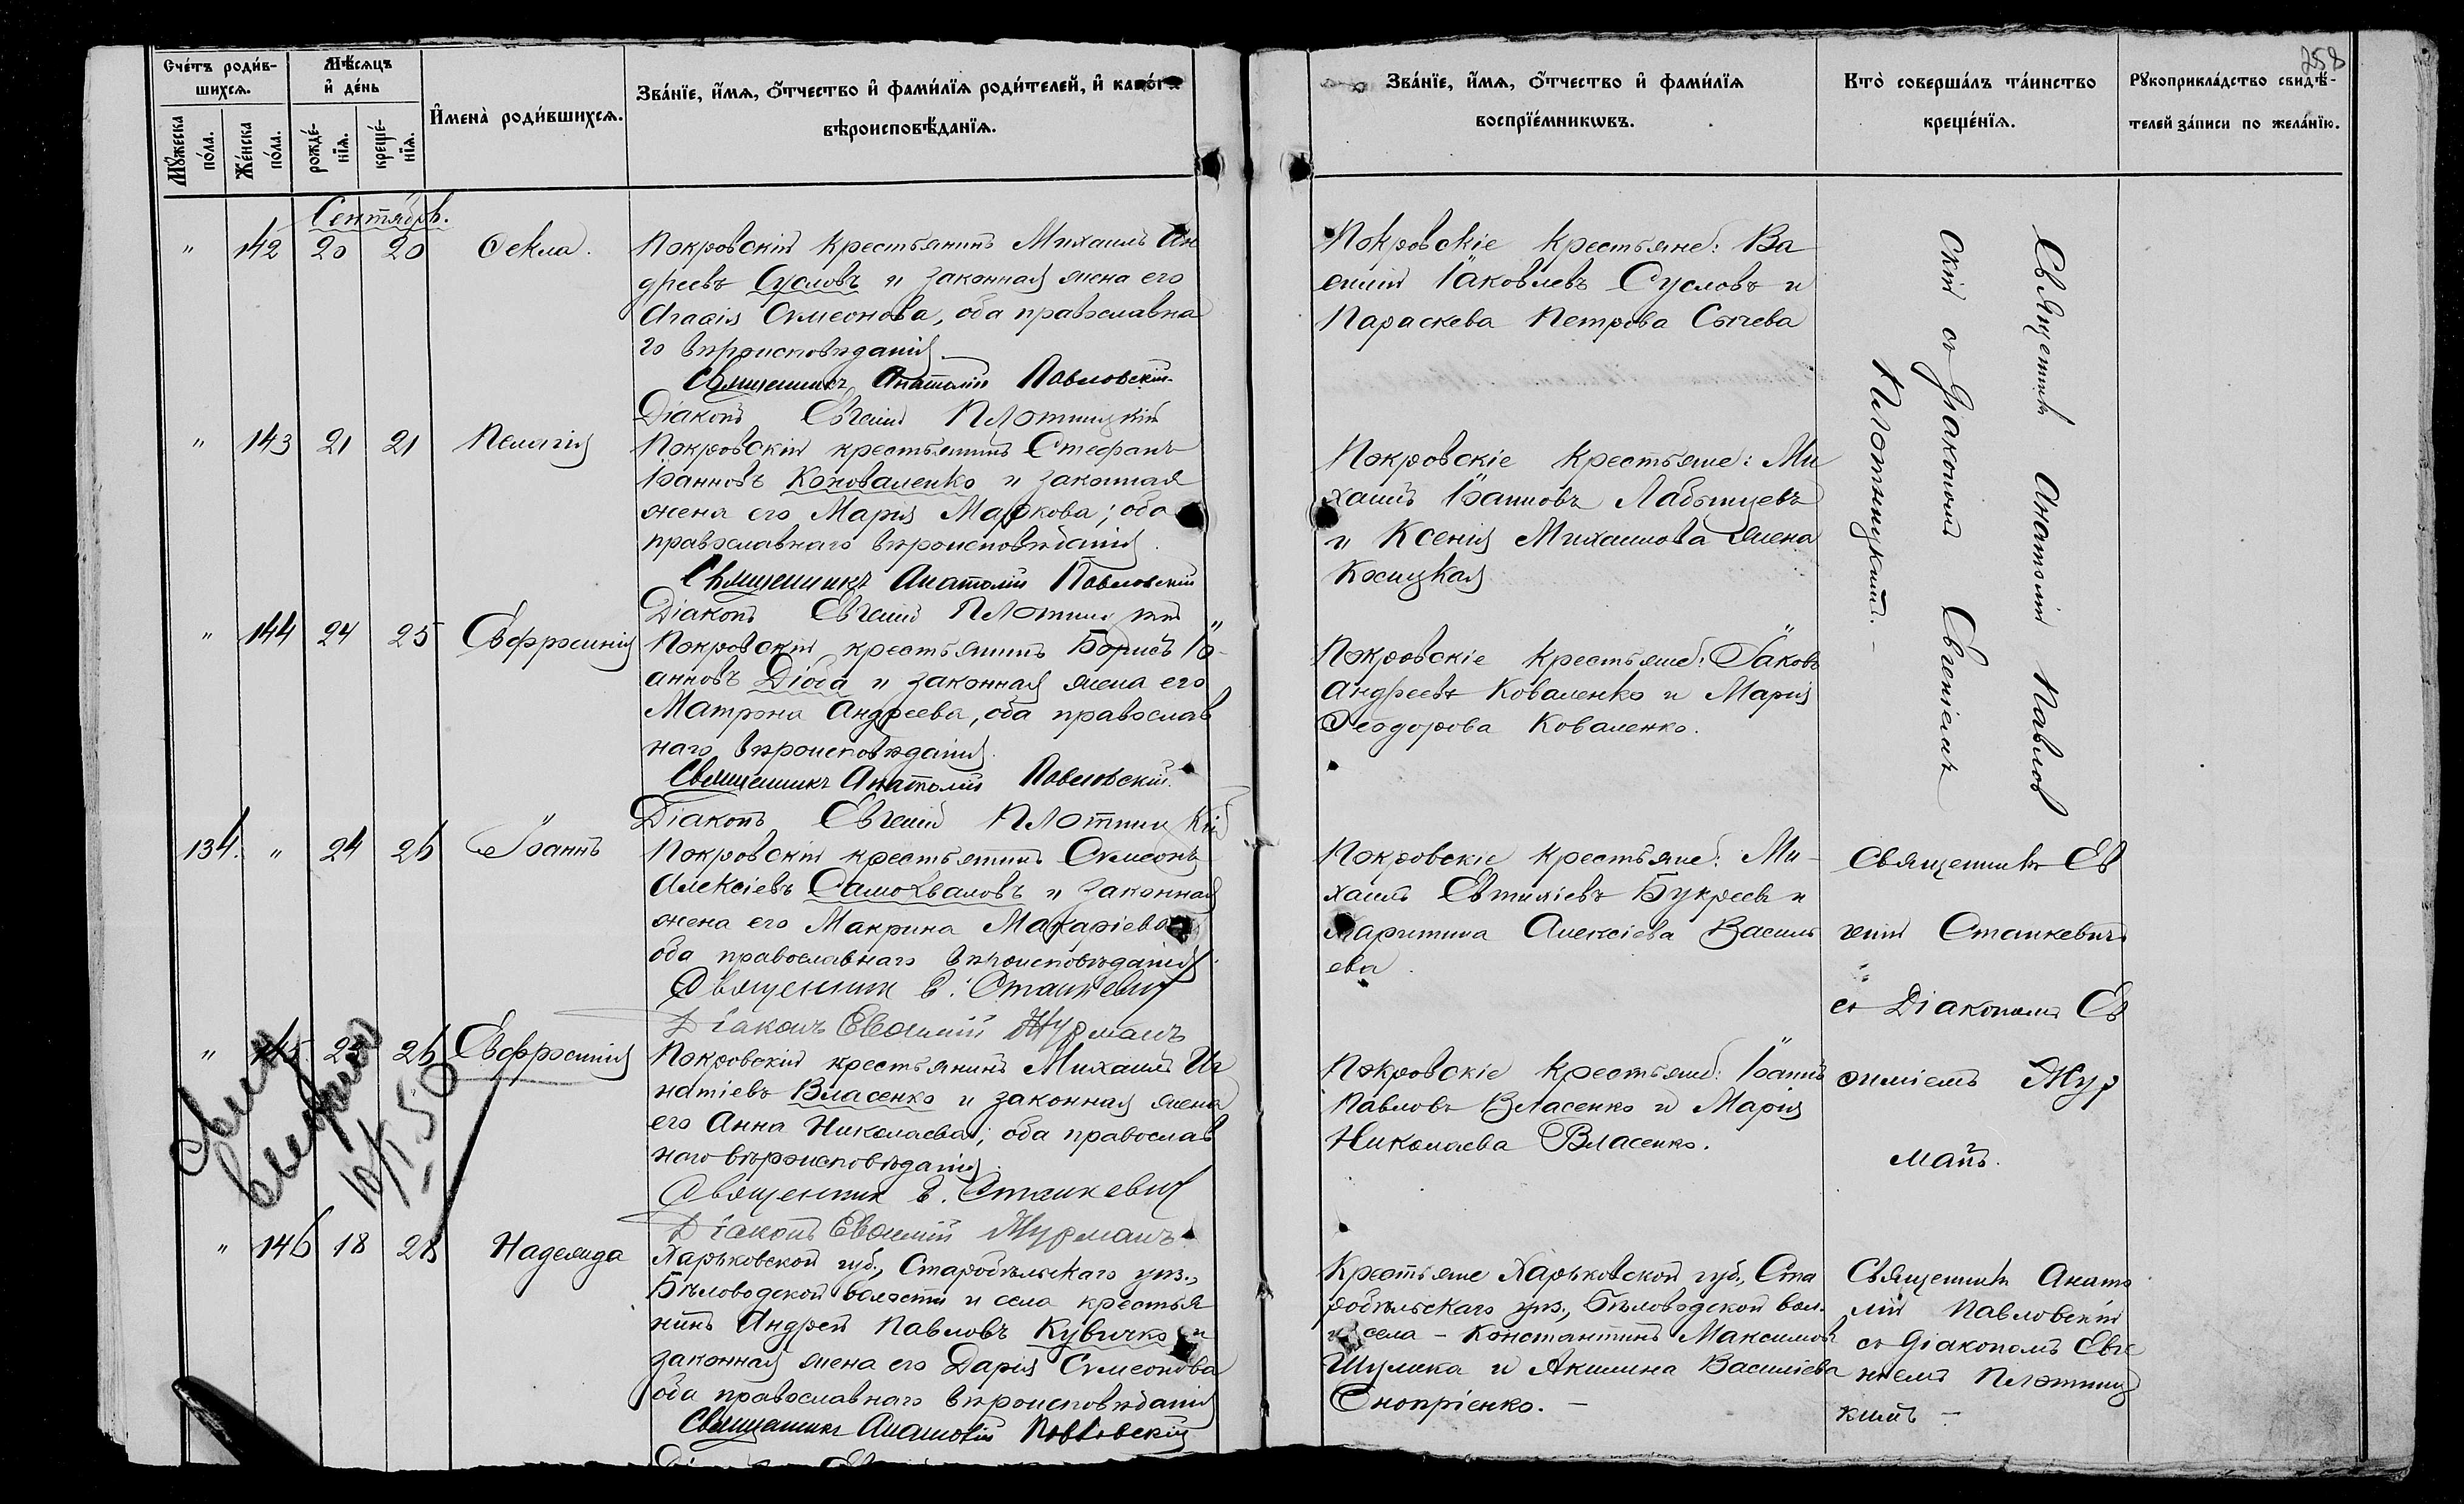 258
Счетъ родив-
шихся.
Мѣсяцъ
и день
Имена родившихся.
Званіе, имя, отчество и фамилія родителей, и какого
вѣроисповѣданія.
Мужеска
пола.
Женска
пола.
рожде-
нія.
креще-
нія.
Званіе, имя, отчество и фамилія
воспріемниковъ.
Кто совершалъ таинство
крещенія.
Рукоприкладство свидѣ-
телей записи по желанію.
Сентябрь.
" 142 20 20 Ѳекла.
Покровскій крестьянинъ Михаилъ Ан
дреевъ Сусловъ и законная жена его
Агаѳія Сѵмеонова, оба православна
го вѣроисповѣданія.
Священникъ Анатолій Павловскій.
Діаконъ Евгеній Плотницкій
Покровскіе крестьяне: Ва
силій Іаковлевъ Сусловъ и
Параскева Петрова Сычева
Священникъ Анатолій Павлов
скій съ діакономъ Евгеніемъ
Плотницкимъ. –
" 143 21 21 Пелагія
Покровскій крестьянинъ Стефанъ
Іоанновъ Коноваленко и законная
жена его Марія Маркова; оба
православнаго вѣроисповѣданія.
Священникъ Анатолій Павловскій
Діаконъ Евгеній
Покровскіе крестьяне: Ми
хаилъ Іоанновъ Лабынцевъ
и Ксенія Михаилова жена
Косицкая
" 144 24 25 Евфросинія
Покровскій крестьянинъ Борисъ Іо-
анновъ Діоба и законная жена его
Матрона Андреева, оба православ
наго вѣроисповѣданія.
Священникъ Анатолій Павловскій.
Діаконъ Евгеній
Покровскіе крестьяне: Іаковъ
Андреевъ Коваленко и Марія
Ѳеодорова Коваленко.
134. " 24 26 Іоаннъ
Покровскій крестьянинъ Сѵмеонъ
Алексіевъ Самохваловъ и законная
жена его Макрина Макаріева
оба православнаго вѣроисповѣданія.
Священник Е. Станкевич
Діаконъ Евѳимій Журманъ
Покровскіе крестьяне: Ми-
хаилъ Евтихіевъ Букреевъ и
Харитина Алексіева Василь
ева.
Священникъ Ев
геній Станкевичъ
съ Діакономъ Ев
ѳиміемъ Жур
маномъ.
" 145 25 26 Евфросинія
Покровскій крестьянинъ Михаилъ Иг
натіевъ Власенко и законная жена
его Анна Николаева; оба православ
наго вѣроисповѣданія.
Священник Е. Станкевич
Діаконъ Евѳимій Журманъ.
Покровскіе крестьяне: Іоаннъ
Павловъ Власенко и Марія
Николаева Власенко.
" 146 18 28 Надежда
Харьковской губ., Старобѣльскаго уѣз.,
Бѣловодской волости и села крестья
нинъ Андрей Павловъ Кувичко и
законная жена его Дарія Сѵмеонова
оба православнаго вѣроисповѣданія
Священникъ Анатолій Павловскій
Крестьяне Харьковской губ., Ста
робѣльскаго уѣз., Бѣловодской вол.
и села – Константинъ Максимовъ
Шулика и Акилина Василіева
Оноприенко. –
Священникъ Анато
лій Павловскій
съ діакономъ Евге
ніемъ Плотниц
кимъ –